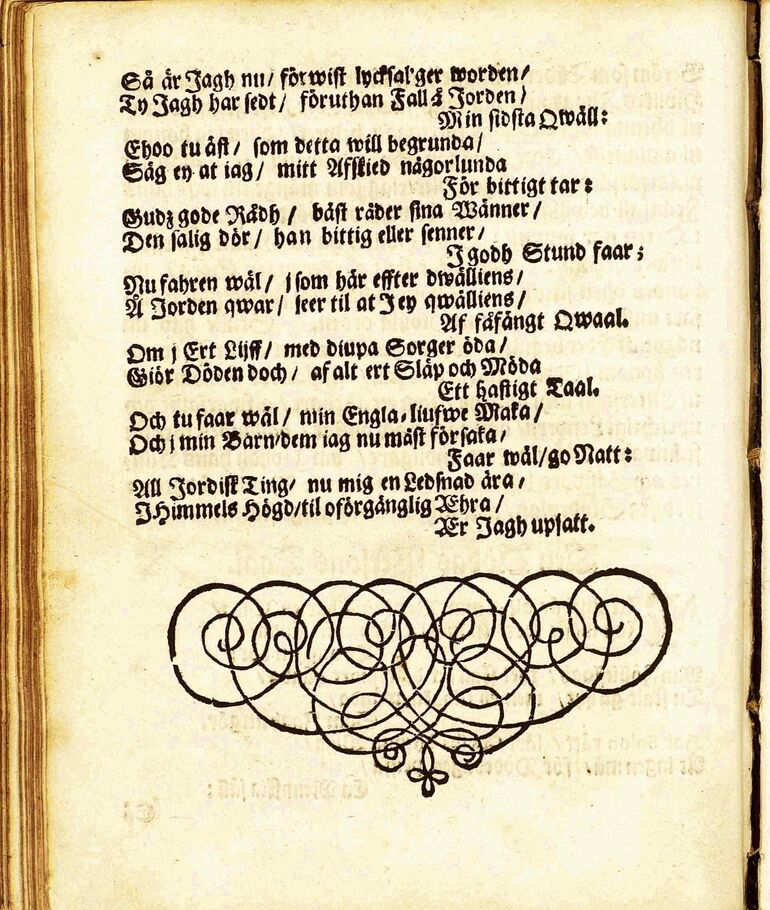 Så är Jagh nu/ förwist lycksal'ger worden/
Ty Jagh har sedt/ föruthan Fall å Jorden/
Min sidsta Qwäll:
Ehoo tu äst/ som detta will begrunda/
Säg ey at iag/ mitt Afskied någorlunda
För bittigt tar:
Gudz gode Rådh/ bäst råder sina Wänner/
Den salig dör/ han bittig eller senner/
I godh Stund faar;
Nu fahren wäl/ j som här effter dwälliens/
Å Jorden qwar/ seer til at J ey qwälliens/
Af fåfängt Qwaal.
Om j Ert Lijff/ med diupa Sorger öda/
Giör Döden doch/ af alt ert Släp och Möda
Ett hastigt Taal.
Och tu faar wäl/ min Engla-liufwe Maka/
Och j min Barn/dem iag nu mäst försaka/
Faar wäl/go Natt:
All Jordisk Ting/ nu mig en Ledsnad ära/
J Himmels Högd/til oförgänglig Æhra/
Ær Jagh upsatt.